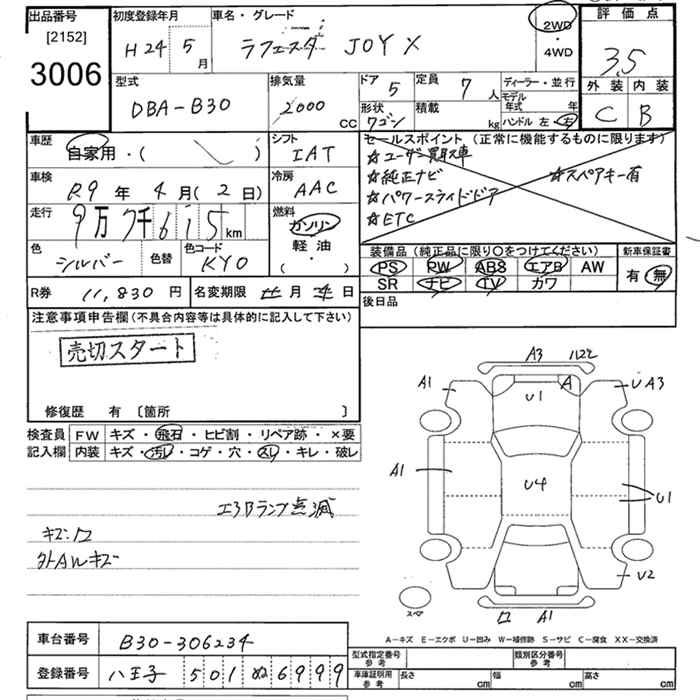 出品番号 初度登録年月 車名・グレード 2WD 評価点
[2152] H24 5月 ラフェスタ JOY X ・ 3.5
3006 4WD 外装 内装
型式 排気量 ドア 定員 ディーラー・並行 C B
DBA-B30 2000 CC 5 7人 モデル年式 年
形状 ワゴン 積載 kg ハンドル 左 右
車歴 シフト セールスポイント (正常に機能するものに限ります)
自家用・( ) IAT ☆ユーザー買取車
車検 冷房 ☆純正ナビ ☆スペアキー有
R9年 4月(2日) AAC ☆パワースライドドア
走行 燃料 ☆ETC
9万7千615km ガソリン
色 色替 色コード 軽油 装備品 (純正品に限り○をつけてください) 新車保証書
シルバー KY0 ( ・ ) PS PW ABS エアB AW 有・無
SR ナビ TV カワ
R券 11,830円 名変期限 月 日 後日品
注意事項申告欄(不具合内容等は具体的に記入して下さい)
売切スタート
A3
A1 U1 A UA3
修復歴 有 [箇所 ]
検査員 FW キズ・飛石・ヒビ割・リペア跡・×要
記入欄 内装 キズ・汚レ・コゲ・穴・スレ・キレ・破レ
A1 U4 U1
エアBランプ点滅
キズ:ロ
外AWキズ
U2
スペア ロ A1
A-キズ E-エクボ U-凹み W-補修跡 S-サビ C-腐食 XX-交換済
車台番号 B30-306234
型式指定番号 参考 類別区分番号 参考
登録番号 八王子 501 ぬ6999
車庫証明用 参考 長さ cm 幅 cm 高さ cm